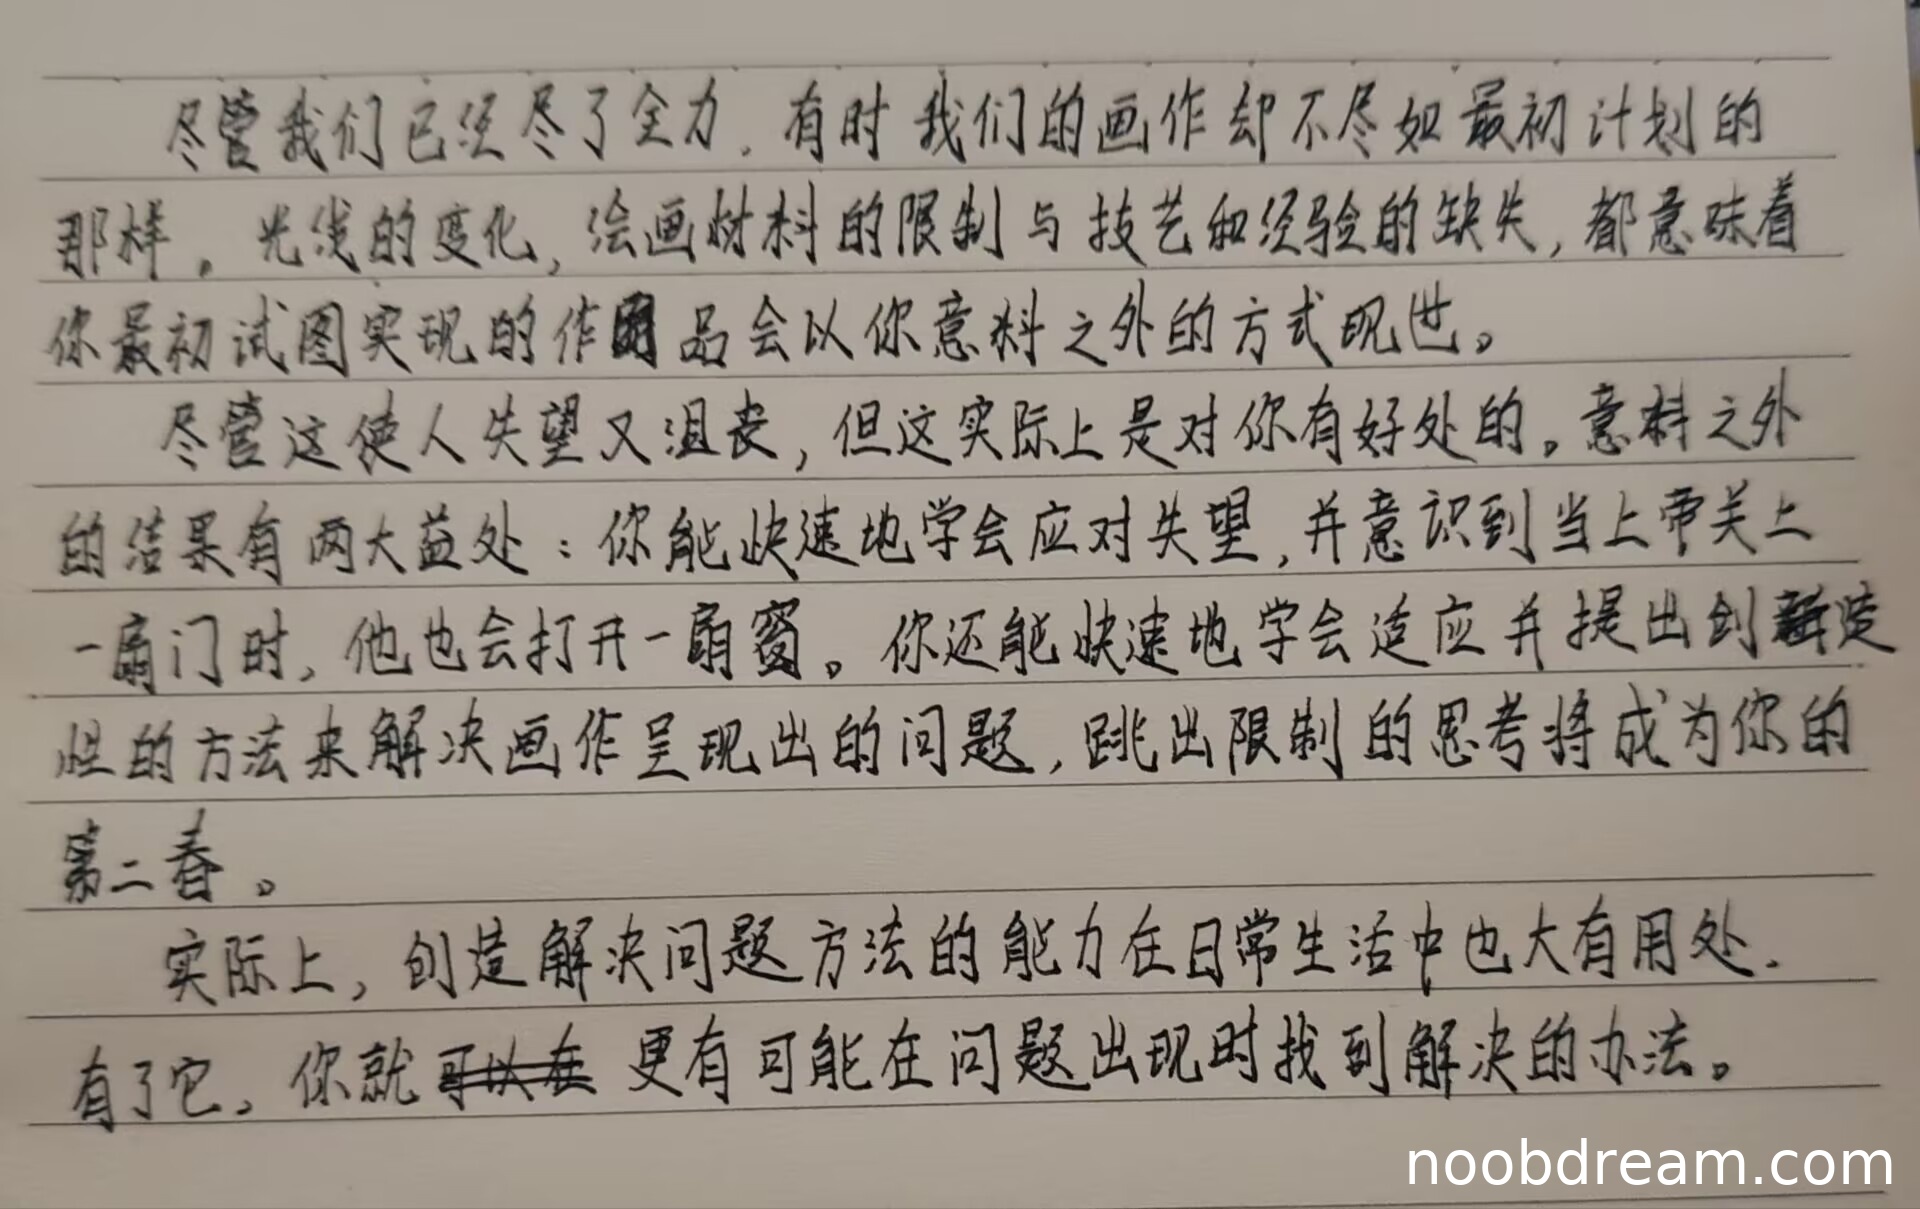 尽管我们已经尽了全力，有时我们的画作却不尽如最初计划的
那样。光线的变化，绘画材料的限制与技艺和经验的缺失，都意味着
你最初试图实现的作品会以你意料之外的方式现世。
尽管这使人失望又沮丧，但这实际上是对你有好处的。意料之外
的结果有两大益处：你能快速地学会应对失望，并意识到当上帝关上
一扇门时，他也会打开一扇窗。你还能快速地学会适应并提出创造
性的方法来解决画作呈现出的问题，跳出限制的思考将成为你的
第二春。
实际上，创造解决问题方法的能力在日常生活中也大有用处.
有了它，你就可以在更有可能在问题出现时找到解决的办法。
noobdream.com